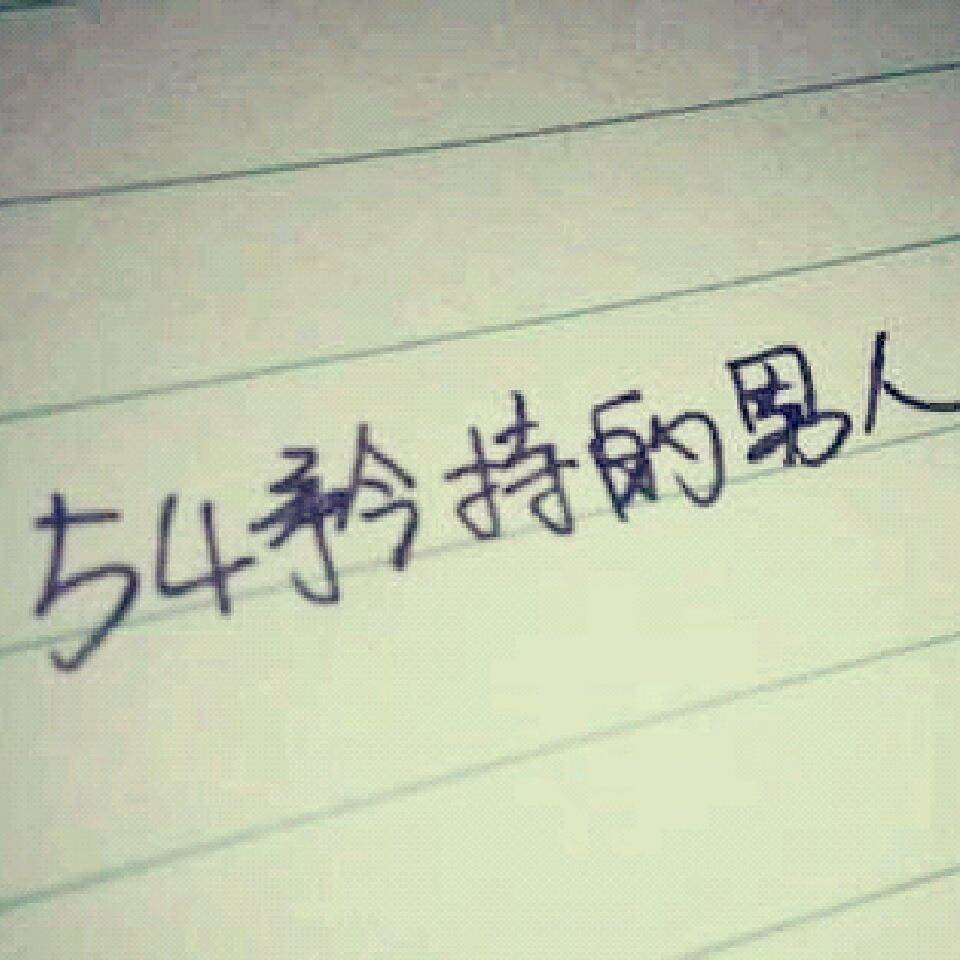 54矜持的男人